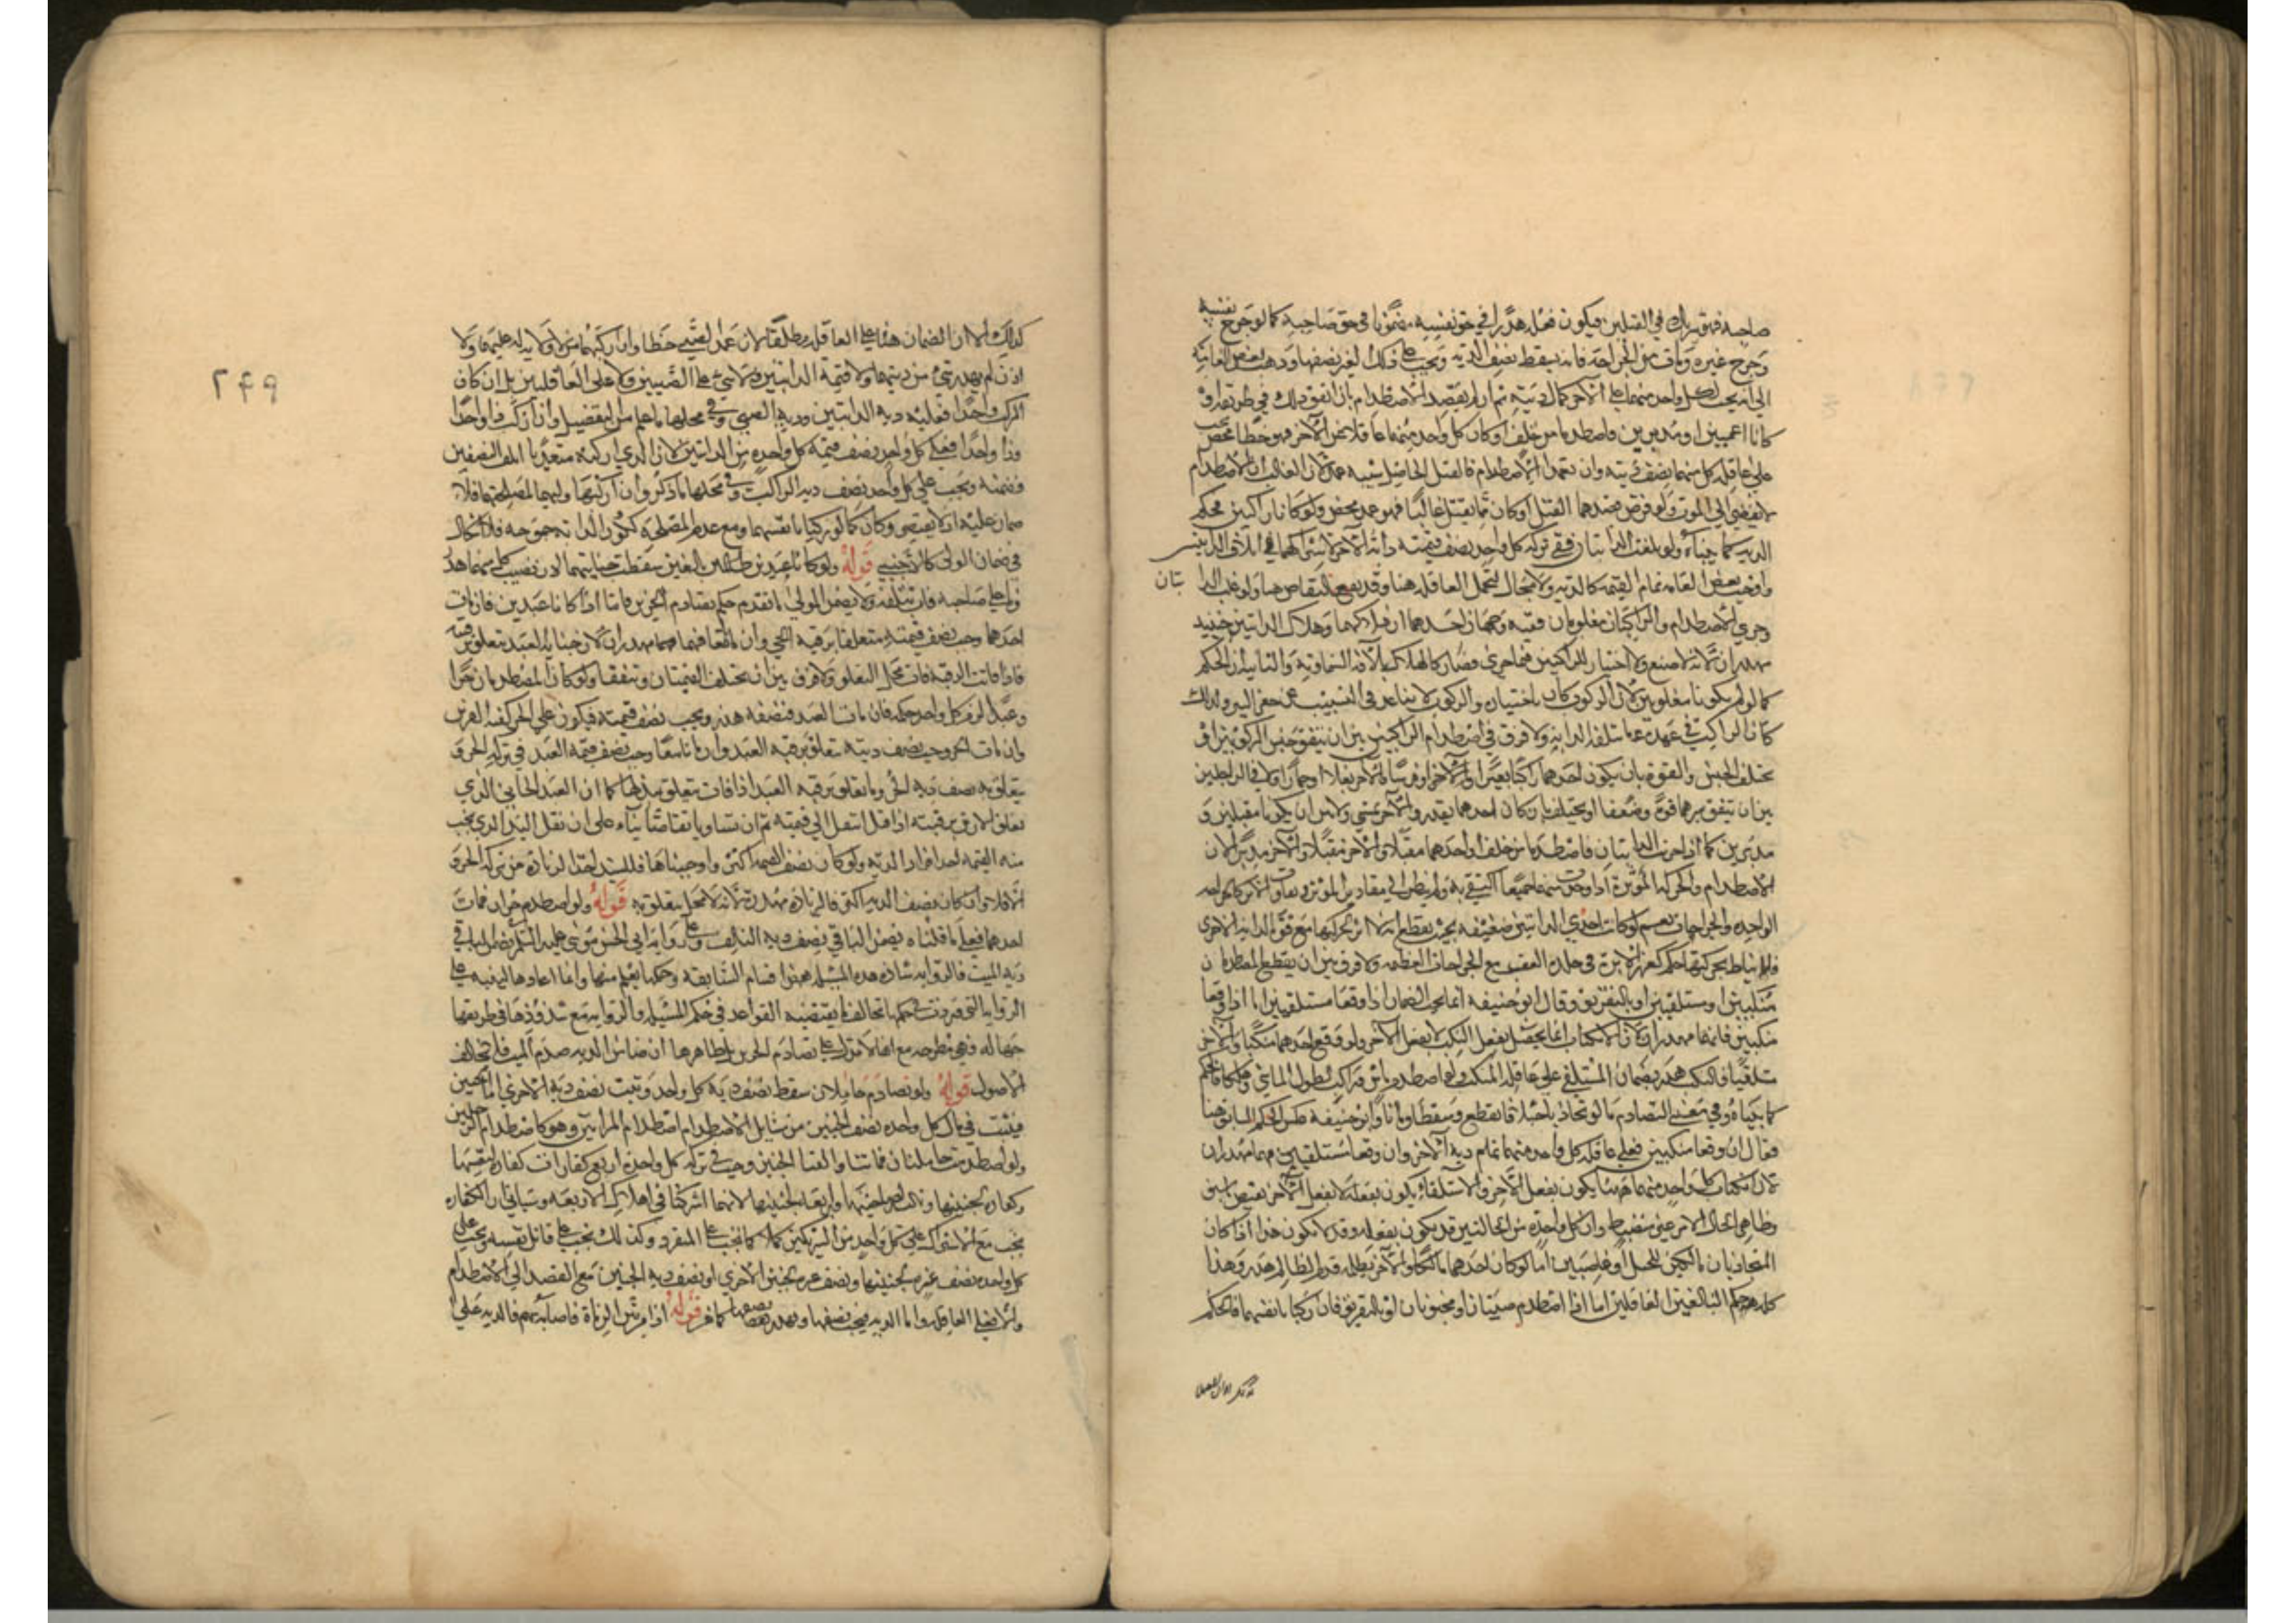 صاحبه فهو شريك في القتلين فيكون فعله هدرا في حق نفسه مضمونا في حق صاحبه كما لو جرح نفسه
وجرح غيره ومات من الجراحة فانه يسقط نصف الدية ويجب على ذلك الغير نصفها وذهب بعض العامة
الى انه يجب لكل واحد منهما على الآخر كمال ديته ثم ان لم يقصد الاصطدام بان اتفق ذلك في طريق او
كانا اعميين او مدبرين فاصطدما من خلف او كان كل واحد منهما غافلا عن الآخر فهو خطأ محض يجب
على عاقلة كل منهما نصف ديته وان تعمدا الاصطدام فالقتل الحاصل شبيه عمد لان الغالب ان الاصطدام
لا يفضي الى الموت ولو فرض قصدهما القتل او كان مما يقتل غالبا فهو عمد محض ولو كانا راكبين فحكم
الدية كما بيناه ولو تلفت الدابتان ففي تركة كل واحد نصف قيمة دابة الآخر لاشتراكهما في اتلاف الدابتين
واوجب بعض العامة تمام القيمة كالدية ولا مجال لتحمل العاقلة هنا وقد يقع التقاص هنا ولو غلب الدا
بتان
وجرى الاصطدام والراكبان مغلوبان ففيه وجهان احدهما ان هلاكهما وهلاك الدابتين حينئذ
مهدران لانه لا صنع ولا اختيار للراكبين فيما جرى فصار كالهلاك بالآفة السماوية والثاني ان الحكم
كما لو لم يكونا مغلوبين لان الركوب كان باختياره والركوب لا يتباعد في التسبيب عن حفر البئر ولذلك
كان الراكب في عهدة ما تتلفه الدابة ولا فرق في اصطدام الراكبين بين ان يتفق جنس المركوبين او
يختلف الجنس والقوة بان يكون احدهما راكبا بعيرا والآخر او فرسا والآخر بغلا او حمارا ولا في الراجلين
بين ان يتفق سيرهما قوة وضعفا او يختلف بان كان احدهما يعدو والآخر يمشي ولا بين ان يكونا مقبلين و
مدبرين كما اذا جرت الدابتان فاصطدما من خلف او احدهما مقبلا والآخر مدبرا لان
الاصطدام والحركة المؤثرة اذا وجدت منهما جميعا اكتفي به ولم ينظر الى مقادير المؤثر وتفاوت الاثر كالجراحة
الواحدة والجراحات نعم لو كانت احدى الدابتين ضعيفة بحيث يقطع بانه لا اثر لحركتها مع قوة الدابة الاخرى
فلا يناط بحركتها حكم كغرز الابرة في جلدة العقب مع الجراحات العظيمة ولا فرق بين ان يقطع المصطدمان
منكبين او مستلقيين او بالتفريق وقال ابو حنيفة انما يجب الضمان اذا وقعا مستلقيين اما اذا وقعا
منكبين فانهما مهدران لان الانكباب انما يحصل بفعل المنكب لا بفعل الآخر ولو وقع احدهما منكبا والآخر
مستلقيا فالمنكب هدر وضمان المستلقي على عاقلة المنكب
كما بيناه وفي معنى التصادم ما لو تجاذبا حبلا فانقطع وسقطا وماتا وابو حنيفة عكس الحكم السابق هنا
فقال ان وقعا منكبين فعلى عاقلة كل واحد منهما تمام دية الآخر وان وقعا مستلقيين فهما مهدران
لان انكباب كل واحد منهما هنا يكون بفعل الآخر والاستلقاء يكون بفعله لا بفعل الآخر
وظاهر الحال ان الامر غير منضبط وان كل واحدة من الحالتين قد يكون بفعله وقد لا يكون هذا اذا كان
المتجاذبان مالكين للحبل او غاصبين اما لو كان احدهما مالكا والآخر ظالما فدم الظالم هدر وهذا
كله حكم البالغين العاقلين اما اذا اصطدم صبيان او مجنونان او بالتفريق فان ركبا بانفسهما فالحكم
كذلك الا ان الضمان هنا على العاقلة مطلقا لان عمد الصبي خطأ وان اركبهما من لا ولاية له عليهما ولا
اذن لم يهدر شيء من ديتهما ولا قيمة الدابتين ولا شيء على الصبيين ولا على العاقلتين بل ان كان
المركب واحدا فعليه دية الدابتين ودية الصبي وفي محلها ما علم من التفصيل وان اركب هذا واحدا
وذا واحدا فعلى كل واحد نصف قيمة كل واحدة من الدابتين لان الذي اركبه متعديا اتلف النصفين
فضمنه ويجب على كل واحد نصف دية الراكب وفي محلها ما ذكر وان اركبهما وليهما لمصلحتهما فلا
ضمان عليه اذ لا تقصير وكان كما لو ركبا بانفسهما ومع عدم المصلحة ككون الدابة جموحة فلا اشكال
في ضمان الولي كالاجنبي قوله ولو كانا عبدين بالغين سقطت جنايتهما لان نصيب كل منهما هدر
وما على صاحبه فات بتلفه ولا يضمن المولى ما تقدم حكم تصادم الحرين فاما اذا كانا عبدين فان مات
احدهما وجب نصف قيمته متعلقا برقبة الحي وان ماتا فهما مهدران لان جناية العبد تتعلق برقبته
فاذا فاتت الرقبة فات محل التعلق ولا فرق بين ان تختلف القيمتان وتتفقا ولو كان المصطدمان حرا
وعبدا لزم كل واحد حكمه فان مات العبد فنصفه هدر ويجب نصف قيمته فيكون على الحر كقيمة الفرس
وان مات الحر وجب نصف ديته يتعلق برقبة العبد وان ماتا معا وجب نصف قيمة العبد في تركة الحر و
يتعلق به نصف دية الحر وما تعلق برقبة العبد اذا فات تتعلق ببدلها كما ان العبد الجاني الذي
تعلق الارش برقبته اذا قتل انتقل الى قيمته ثم ان تساويا تقاصا بناء على ان نقل البدل الذي يجب
منه القيمة احد افراد الدية ولو كان نصف القيمة اكثر واوجبناها فللسيد اخذ الزيادة من تركة الحر و
الا فلا وان كان نصف الدية اكثر فالزيادة مهدرة لانه لا محل تتعلق به قوله ولو اصطدم حران فمات
احدهما فعلى ما قلناه يضمن الباقي نصف دية التالف وعلى رواية ابي الحسن موسى عليه السلم يضمن الباقي
دية الميت والرواية شاذة هذه المسئلة من اقسام السابقة وحكمها يعلم منها وانما اعادها لينبه على
الرواية التي وردت بحكمها مخالف لما يقتضيه القواعد في حكم المسئلة والرواية مع شذوذها في طريقها
جهالة فهي مطرحة مع انها لا تدل على تصادم الحرين بل ظاهرها ان ضامن الدية صدم الميت فلا تخالف
الاصول قوله ولو تصادم حاملان سقط نصف دية كل واحد وتثبت نصف دية الاخرى اما الجنين
فيثبت في مال كل واحدة نصف الجنين من مسائل الاصطدام اصطدام المرأتين وهو كاصطدام الرجلين
ولو اصطدمت حاملتان فماتتا والقتا الجنين وجب في تركة كل واحدة اربع كفارات كفارة لنفسها
وكفارة لجنينها وثالثة لصاحبتها ورابعة لجنينها لانهما اشتركتا في اهلاك الاربعة وسياتي ان الكفارة
تجب مع الاشتراك على كل واحد من الشريكين كملا كما تجب على المنفرد وكذلك تجب على قاتل نفسه وتجب على
كل واحدة نصف غرة جنينها ونصف غرة جنين الاخرى او نصف دية الجنين مع القصد الى الاصطدام
والا فعلى العاقلة واما الدية فيجب نصفها ويهدر نصفها كما مر قوله اذا مر بين الرماة فاصابه سهم فالدية على
٢٤٩